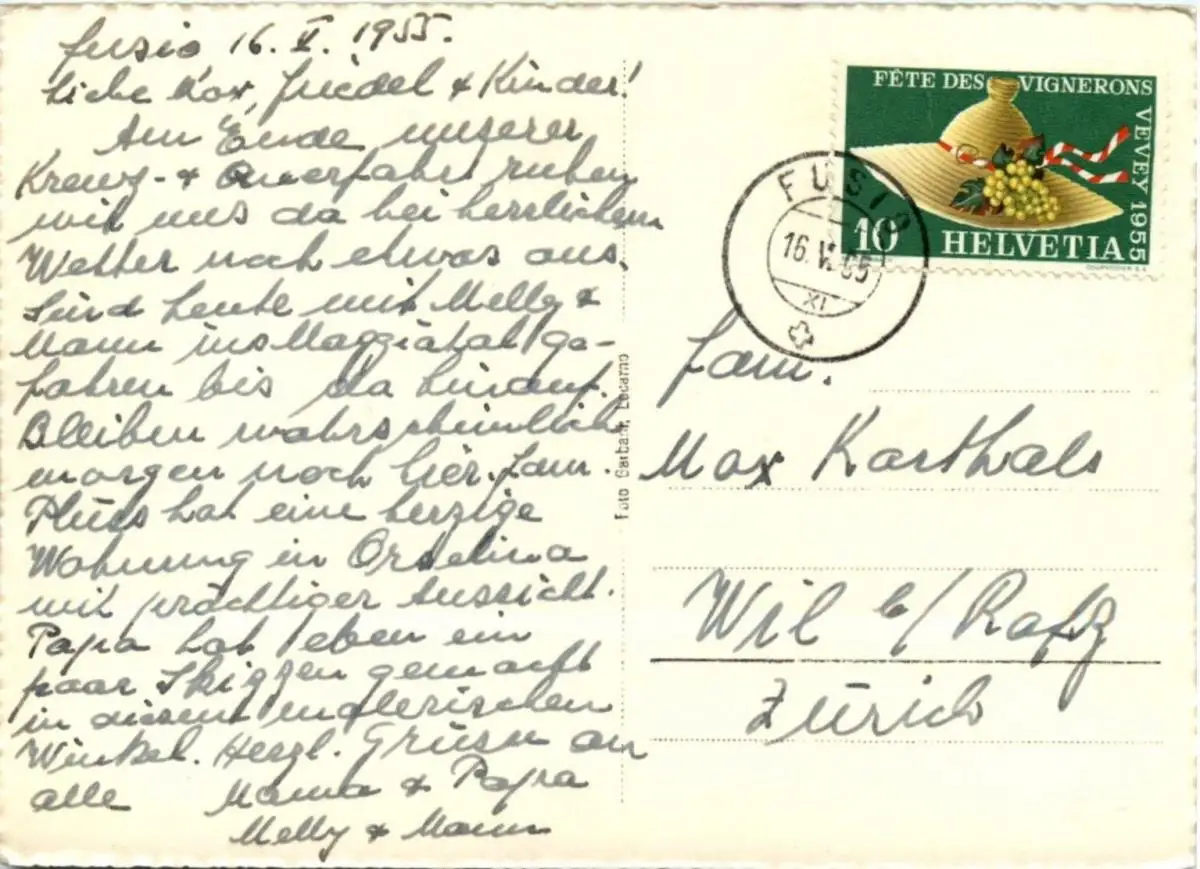 Fusio 16. V. 1955.
Liebe Max, Friedel & Kinder!
Am Ende unserer
Kreuz- & Querfahrt ruhen
wir uns da bei herrlichem
Wetter noch etwas aus.
Sind heute mit Melly &
Mann ins Maggiatal ge-
fahren bis da hinauf.
Bleiben wahrscheinlich
morgen noch hier. Fam.
Plüss hat eine herzige
Wohnung in Orselina
mit prächtiger Aussicht.
Papa hat eben ein
paar Skizzen gemacht
in diesem malerischen
Winkel. Herzl. Grüsse an
alle Mama & Papa
Melly & Mann
Foto Garbani, Locarno
FÊTE DES VIGNERONS
VEVEY 1955
10 HELVETIA
COURVOISIER S.A.
FUSIO
16. V. 55
XI
Fam.
Max Karthals
Wil b/ Rafz
Zürich